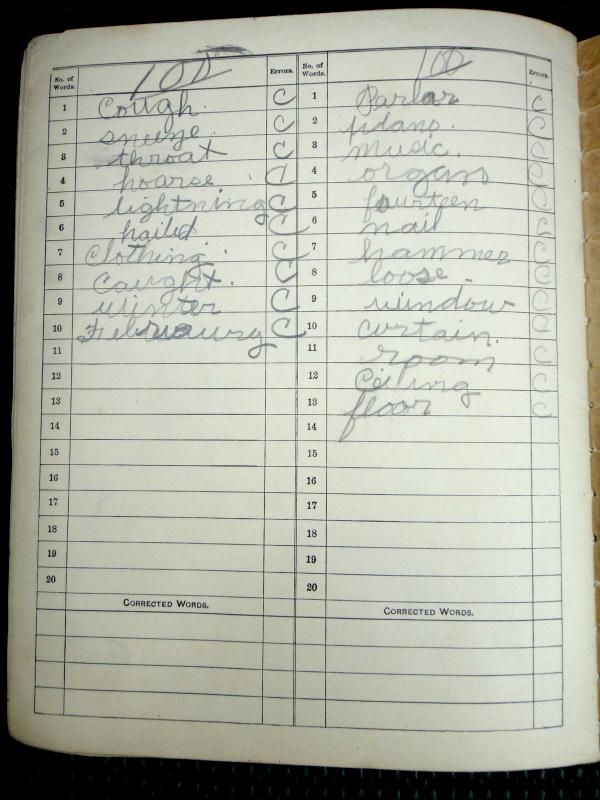 No. of Words. 100 Errors.
1 Cough. C
2 sneeze. C
3 throat C
4 hoarse. C
5 lightning C
6 hailed C
7 Clothing. C
8 Caught. C
9 Winter C
10 February C
11
12
13
14
15
16
17
18
19
20
CORRECTED WORDS.
No. of Words. 100 Errors.
1 Parlor C
2 piano. C
3 music. C
4 organ C
5 fourteen C
6 nail C
7 hammer C
8 loose. C
9 window C
10 curtain. C
11 room C
12 Ceiling C
13 floor C
14
15
16
17
18
19
20
CORRECTED WORDS.